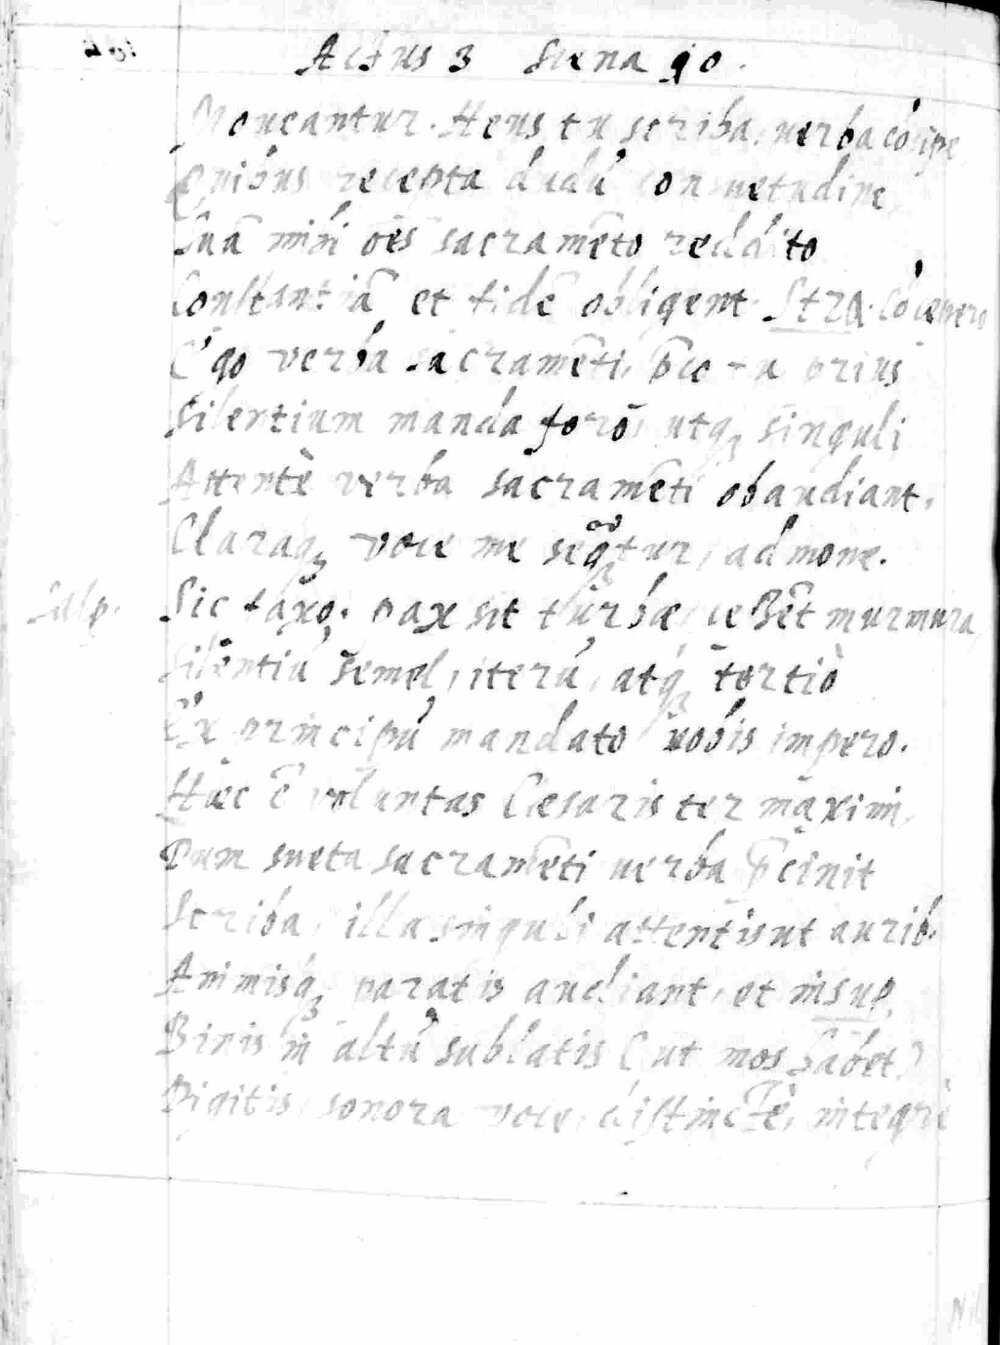 Actus 3 Scena 10.
Moueantur. Heus tu scriba, uerba cōcipe
Quibus recepta dudū consuetudine,
Suā mihi oēs sacramēto reddito
Constantiā et fidē obligent. Stra.
Ergo verba sacramēti, p̄cō tu prius
Silentium manda forō, utq; singuli
Attentè verba sacramēti obaudiant,
Claraq; voce me seq̄tur, admone.
Salp. Sic faxo. pax sit turbæ, murmura
Silentiū semel, iterū, atq; tertiò
Ex principū mandato uobis impero.
Hæc ē voluntas Cæsaris ter maximi,
Dum sueta sacramēti uerba p̄cinit
Scriba, illa singuli attentis ut aurib.
Animisq; paratis audiant, et insup.
Binis in altū sublatis (ut mos habet)
Digitis, sonora voce, distinctè, integrè